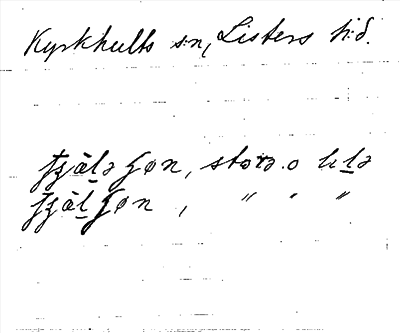 Kyrkhults sn, Listers hd.
fjälə ʃøn, storə o lilə
fjälʃøn, " " "